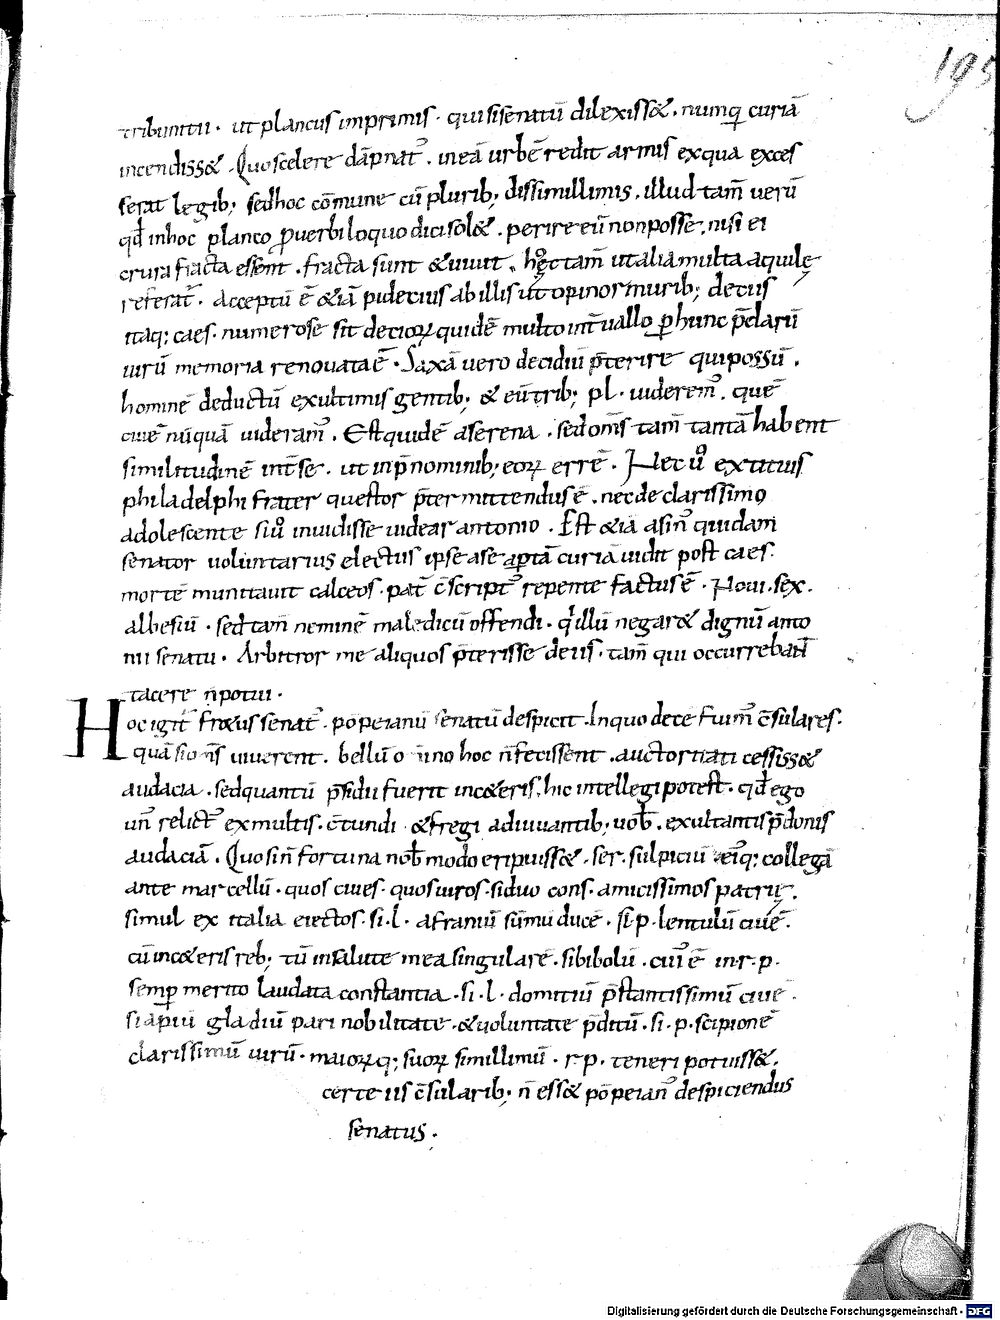 195
tribunitii· ut plancus imprimis· qui si senatū dilexiss&· numq̄ curiā
incendiss&· Quo scelere dāpnat᷒· in eā urbē rediit armis ex qua exces
serat legib;· sed hoc cōmune cū plurib; dissimillimis· illud tam̄ uerū
qd̄ in hoc planco ꝓuerbii loquo dici sol&· perire eū non posse, nisi ei
crura fracta essent· fracta sunt & uiuit· hoc tam̄ ut alia multa aquilę
referat᷒· Acceptū ē &iā pidecius ab illis ut opinor murib; decius
itaq; caes· numerose sit decioꝝ quidē multo int̄uallo ꝑ hunc p̄clarū
uirū memoria renouata ē· Saxā uero decidiū p̄terire qui possū·
hominē deductū ex ultimis gentib; & eū trib; pl· uiderem᷒· quē
ciuē nūquā uideram᷒· Est quidē aserena· sed om̄s tam̄ tantā habent
similitudinē int̄ se· ut in p̄nominib; eoꝝ errē· Nec ů extitius
philadelphi frater questor p̄termittendus ē· nec de clarissimo
adolescente siů inuidisse uidear antonio· Est &iā asin᷒ quidam
senator uoluntarius electus ipse a se· aptā curiā uidit post caes·
mortē munitauit calceos· pat̄ c̄script᷒ repente factus ē· Noui· sex·
albesiū· sed tam̄ neminē maledicū offendi· q̇ illū negar& dignū anto
nii senatu· Arbitror me aliquos p̄terisse de iis· tam̄ qui occurrebant
tacere n̄ potui·
Hoc igit᷒ fr&us senat᷒· pōpeianū senatū despicit· In quo decē fuim᷒ c̄sulares·
quā si om̄s uiuerent· bellū om̄ino hoc n̄ fecissent· auctoritati cessiss&
audacia· sed quantū p̄sidii fuerit in c&eris, hic intellegi potest· qd̄ ego
un᷒ relict᷒ ex multis· c̄tundi &fregi adiuuantib; uob̄· exultantis p̄donis
audaciā· Quos in̄ fortuna nob̄ modo eripuiss&· ser· sulpiciū eiᷣq; collegā
ante marcellū· quos ciues· quos uiros· si duo cons· amicissimos patrię·
simul ex italia eiectos· si· l· afraniū sūmū ducē· si· p· lentulū ciuē·
cū in c&eris reb; tū in salute mea singularē· si bibolū· cui᷒ ē in· r· p·
semꝑ merito laudata constantia· si· l· domitiū p̄stantissimū ciuē·
si apiū gladiū pari nobilitate· & uoluntate p̄ditū· si· p· scipionē
clarissimū uirū· maioꝝq; suoꝝ simillimū· r· p· teneri potuiss&·
certe iis c̄sularib; n̄ ess& pōpeian᷒ despiciendus
senatus·
Digitalisierung gefördert durch die Deutsche Forschungsgemeinschaft - DFG